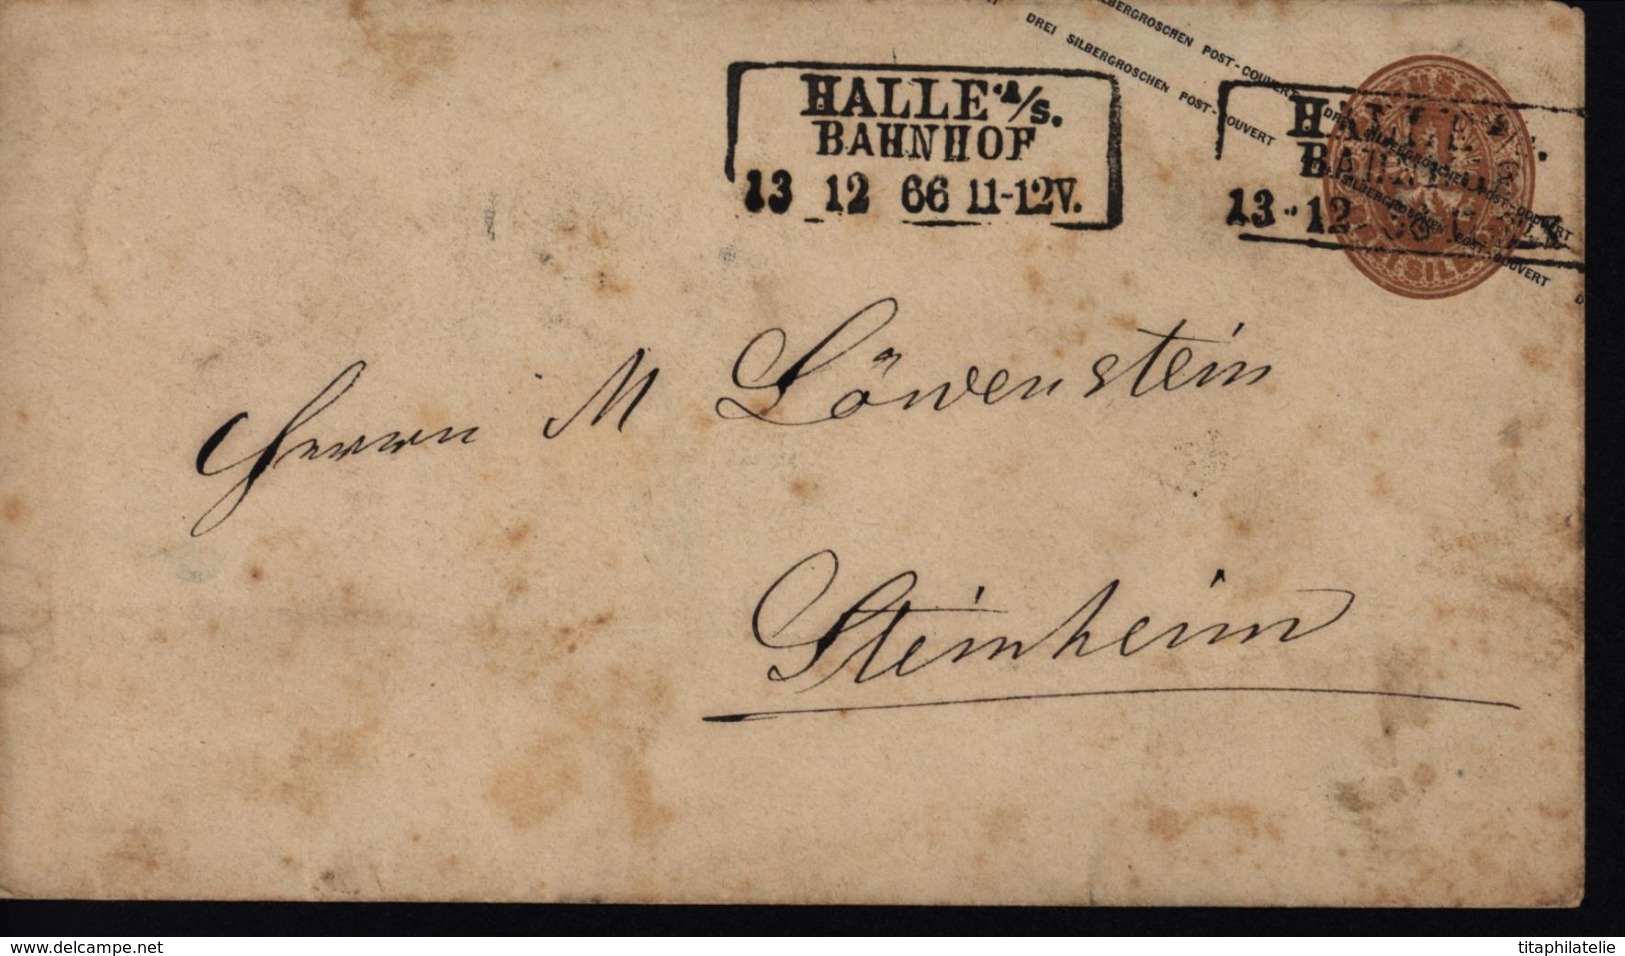 SILBERGROSCHEN POST-COUVERT
DREI SILBERGROSCHEN POST-COUVERT
DREI SILBERGROSCHEN POST-COUVERT
SILBERGROSCHEN POST-COUVERT
HALLE A/S.
BAHNHOF
13 12 66 11-12V.
13 12
Herrn M Löwenstein
Steinheim
www.delcampe.net
titaphilatelie